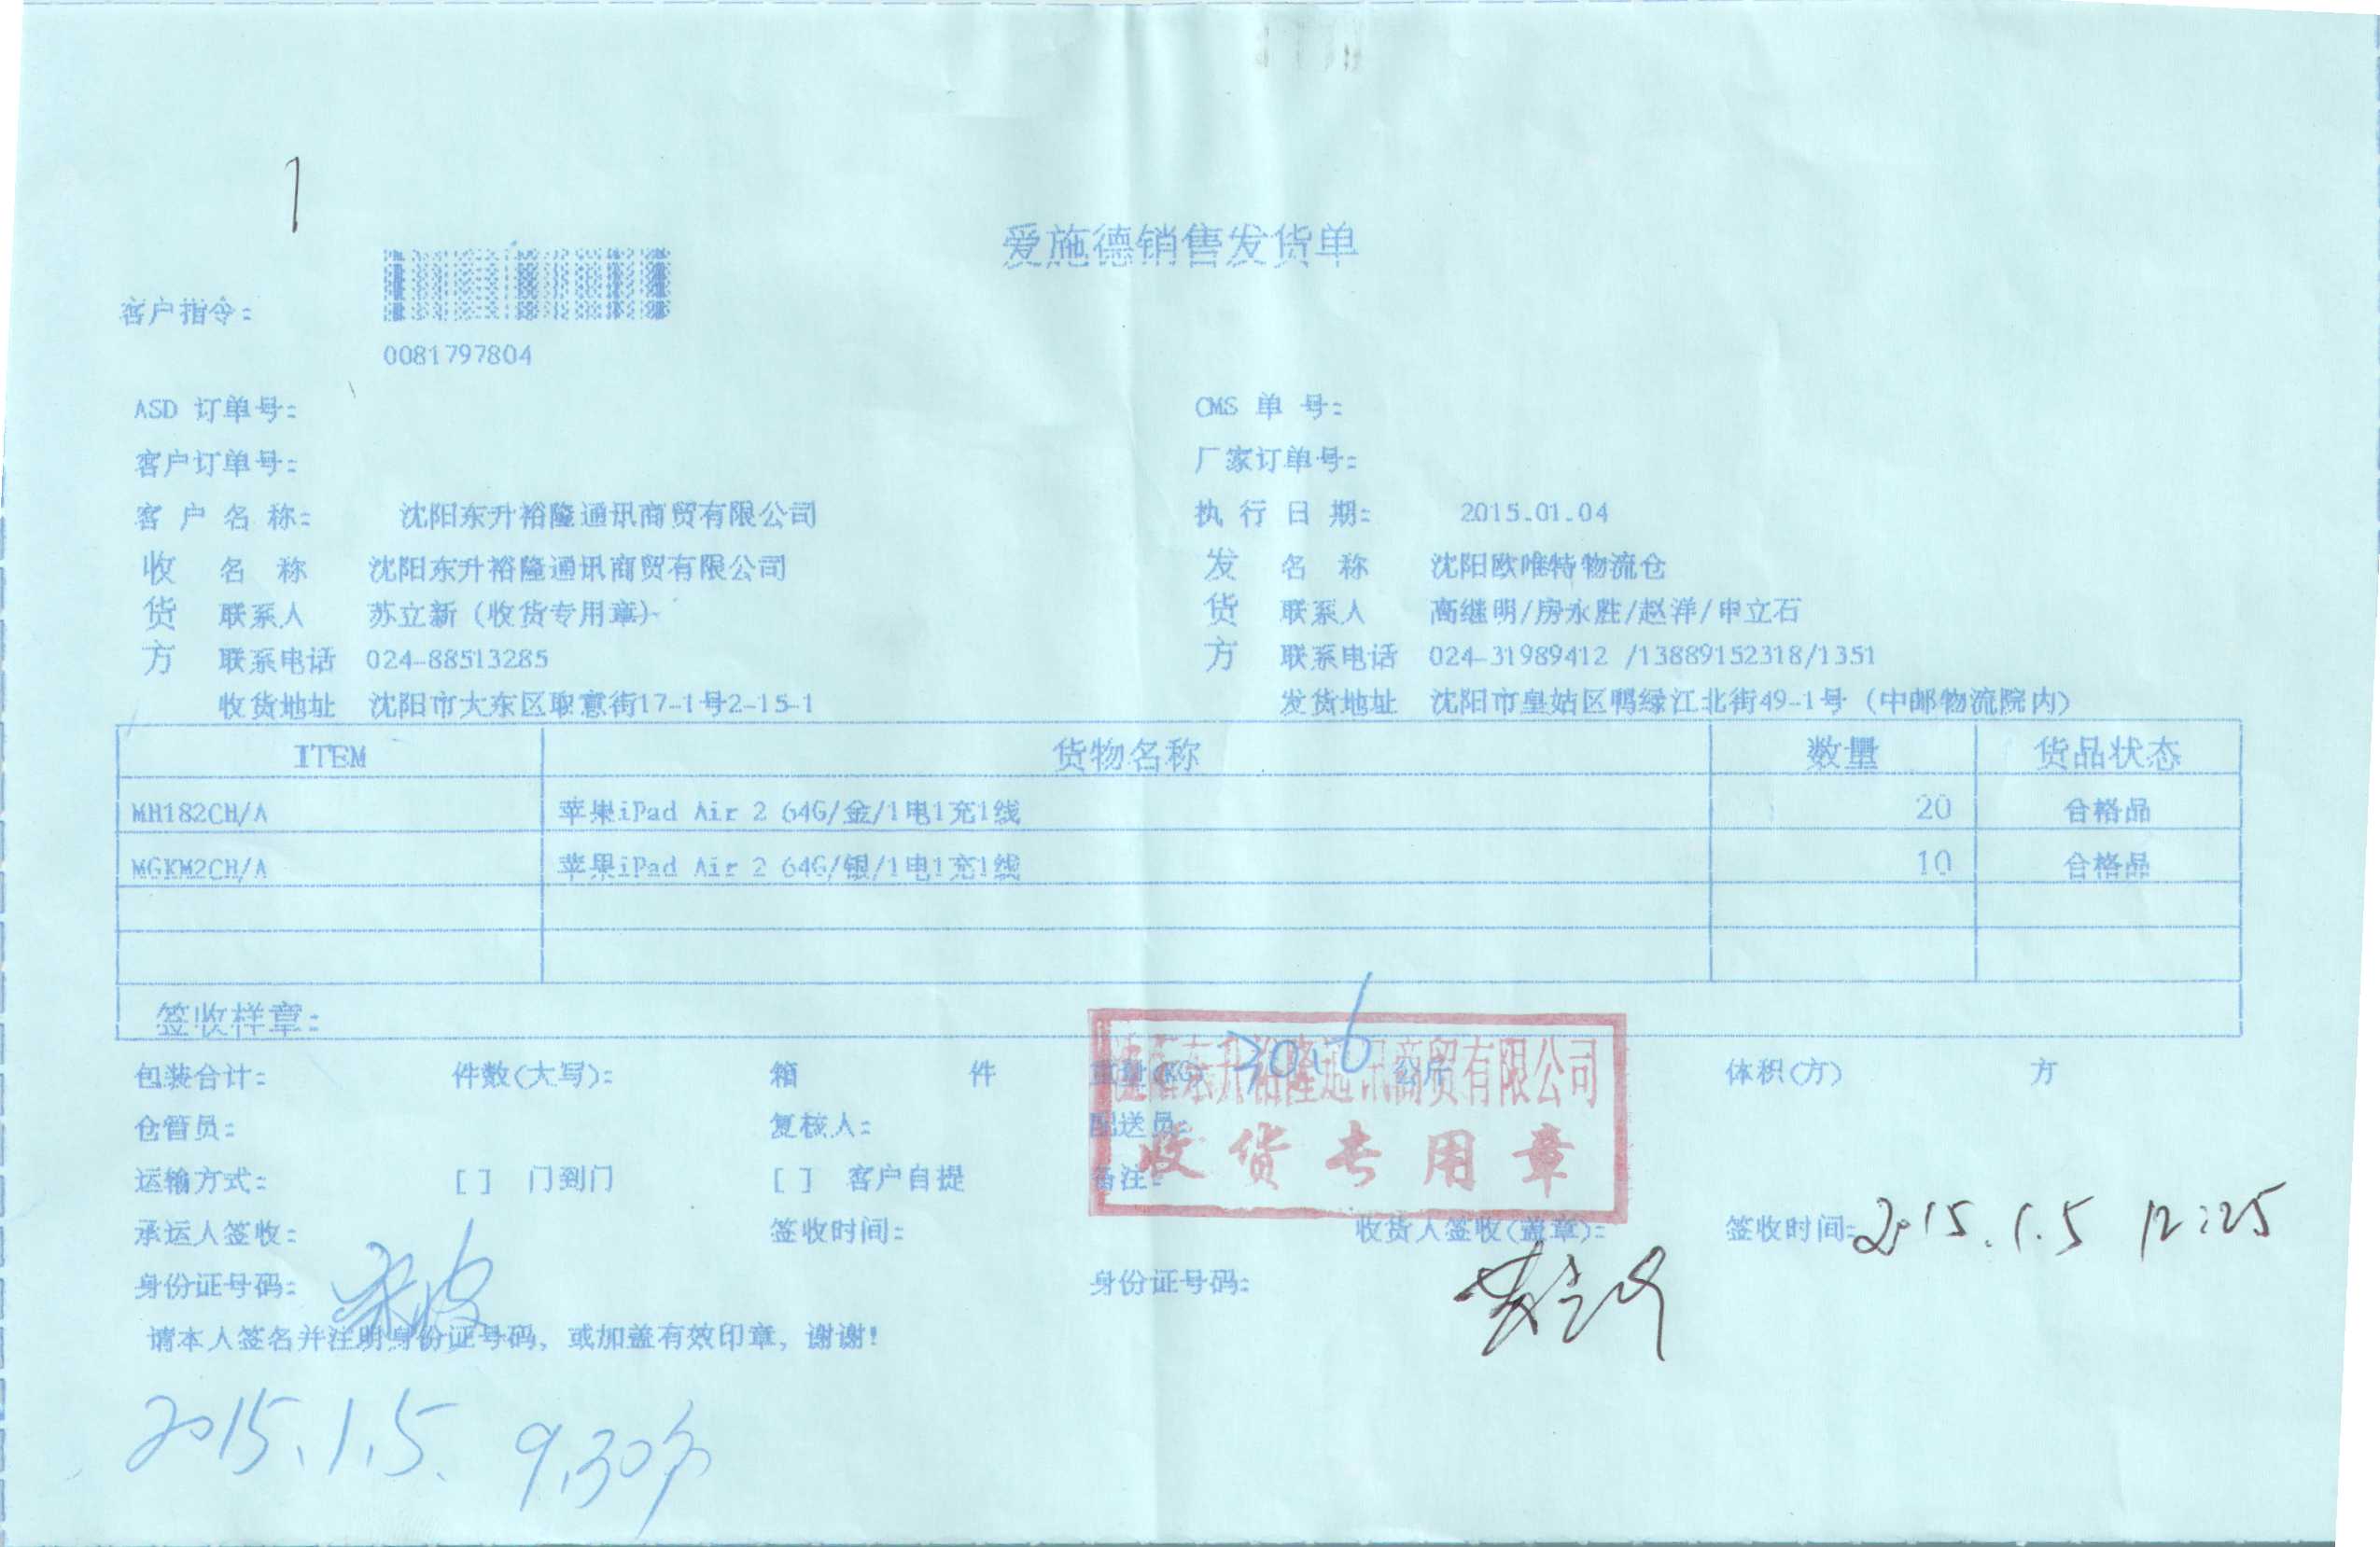 爱施德销售发货单
客户指令:
0081797804
ASD 订单号: CMS 单 号:
客户订单号: 厂家订单号:
客 户 名 称: 沈阳东升裕隆通讯商贸有限公司 执 行 日 期: 2015.01.04
收 名 称 沈阳东升裕隆通讯商贸有限公司 发 名 称 沈阳欧唯特物流仓
货 联系人 苏立新(收货专用章) 货 联系人 高继明/房永胜/赵洋/申立石
方 联系电话 024-88513285 方 联系电话 024-31989412 /13889152318/1351
收货地址 沈阳市大东区取意街17-1号2-15-1 发货地址 沈阳市皇姑区鸭绿江北街49-1号(中邮物流院内)
ITEM 货物名称 数量 货品状态
MH182CH/A 苹果iPad Air 2 64G/金/1电1充1线 20 合格品
MGKM2CH/A 苹果iPad Air 2 64G/银/1电1充1线 10 合格品
签收样章:
包装合计: 件数(大写): 箱 件 重量(KG) 公斤 体积(方) 方
东升裕隆通讯商贸有限公司
仓管员: 复核人: 配送员:
收货专用章
运输方式: [ ] 门到门 [ ] 客户自提 备注:
承运人签收: 签收时间: 收货人签收(盖章): 签收时间: 2015.1.5 12:25
身份证号码: 身份证号码:
请本人签名并注明身份证号码, 或加盖有效印章, 谢谢!
2015.1.5. 9.30